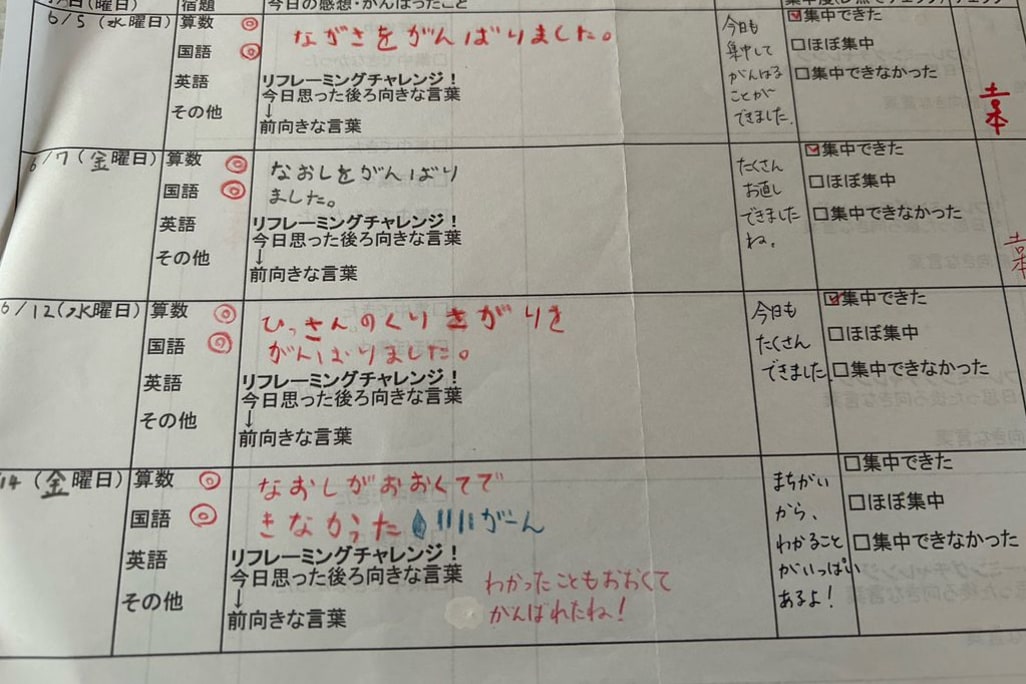 宿題
今日の感想・がんばったこと
6/5(水曜日)
算数
国語
英語
その他
ながさをがんばりました。
リフレーミングチャレンジ!
今日思った後ろ向きな言葉
↓
前向きな言葉
今日も
集中して
がんばる
ことが
できました。
☑集中できた
□ほぼ集中
□集中できなかった
6/7(金曜日)
算数
国語
英語
その他
なおしをがんばり
ました。
リフレーミングチャレンジ!
今日思った後ろ向きな言葉
↓
前向きな言葉
たくさん
お直し
できました
ね。
☑集中できた
□ほぼ集中
□集中できなかった
6/12(水曜日)
算数
国語
英語
その他
ひっさんのくりさがりを
がんばりました。
リフレーミングチャレンジ!
今日思った後ろ向きな言葉
↓
前向きな言葉
今日も
たくさん
できました
☑集中できた
□ほぼ集中
□集中できなかった
14(金曜日)
算数
国語
英語
その他
なおしがおおくてで
きなかった がーん
リフレーミングチャレンジ!
今日思った後ろ向きな言葉
↓
前向きな言葉
わかったこともおおくて
がんばれたね!
まちがい
から、
わかること
がいっぱい
あるよ!
□集中できた
□ほぼ集中
□集中できなかった